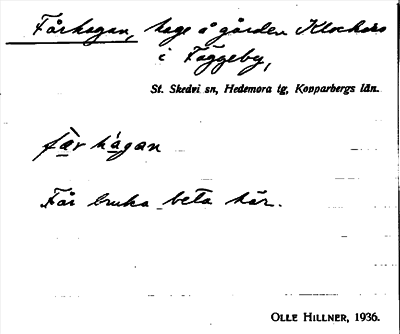 Fårhagan, hage å gården Klockars
i Fäggeby,
St. Skedvi sn, Hedemora tg, Kopparbergs län.
fǡr hágan
Får bruka beta här.
OLLE HILLNER, 1936.